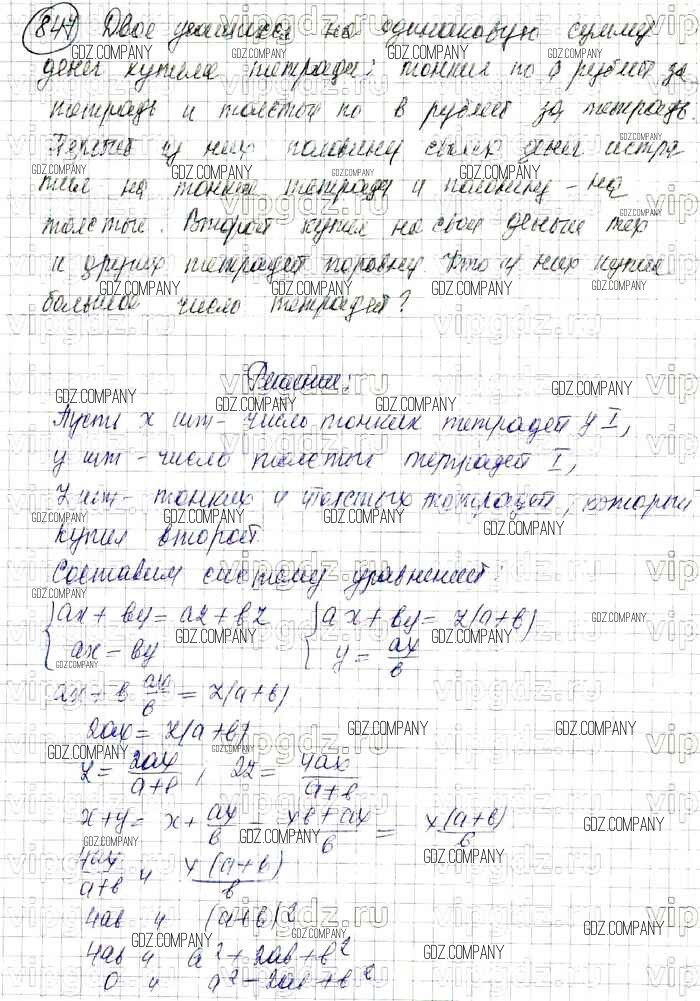 847 Двое учащихся на одинаковую сумму
денег купили тетради: тонкие по а рублей за
тетрадь и толстые по в рублей за тетрадь.
Первый из них половину своих денег истра
тил на тонкие тетради и половину - на
толстые. Второй купил на свои деньги тех
и других тетрадей поровну. Кто из них купил
большее число тетрадей?
Решение:
Пусть x шт - число тонких тетрадей у I,
y шт - число толстых тетрадей I,
z шт - тонких и толстых тетрадей, которые
купил второй.
Составим систему уравнений:
{ax + by = az + bz {ax + by = z(a+b)
ax = by y = ax/b
ax + b · ax/b = z(a+b)
2ax = z(a+b)
z = 2ax/(a+b), 2z = 4ax/(a+b)
x+y = x + ax/b = (xb + ax)/b = x(a+b)/b
4ax/(a+b) и x(a+b)/b
4ab и (a+b)2
4ab и a² + 2ab + b²
0 и a² - 2ab + b²
GDZ.COMPANY
vipgdz.ru